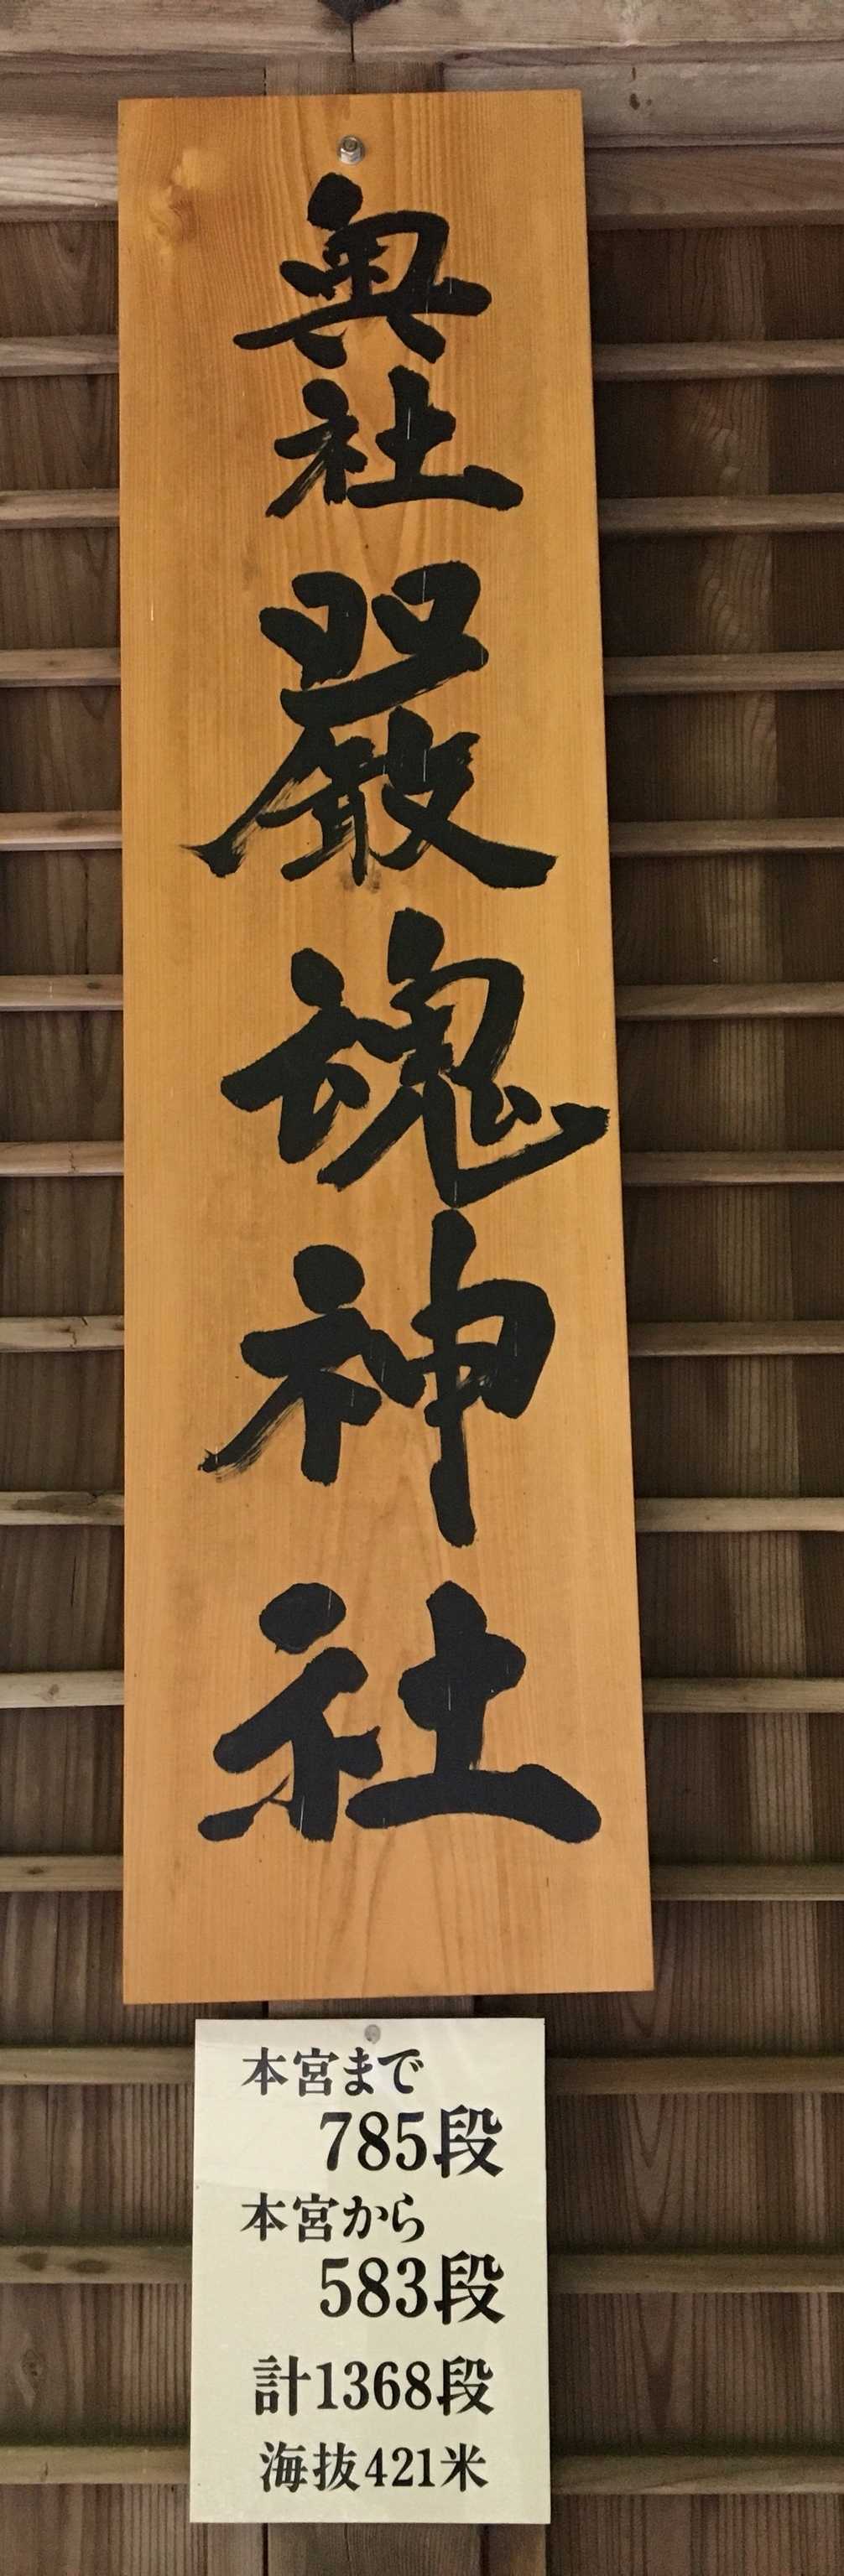 奥社
嚴魂神社
本宮まで
785段
本宮から
583段
計1368段
海抜421米